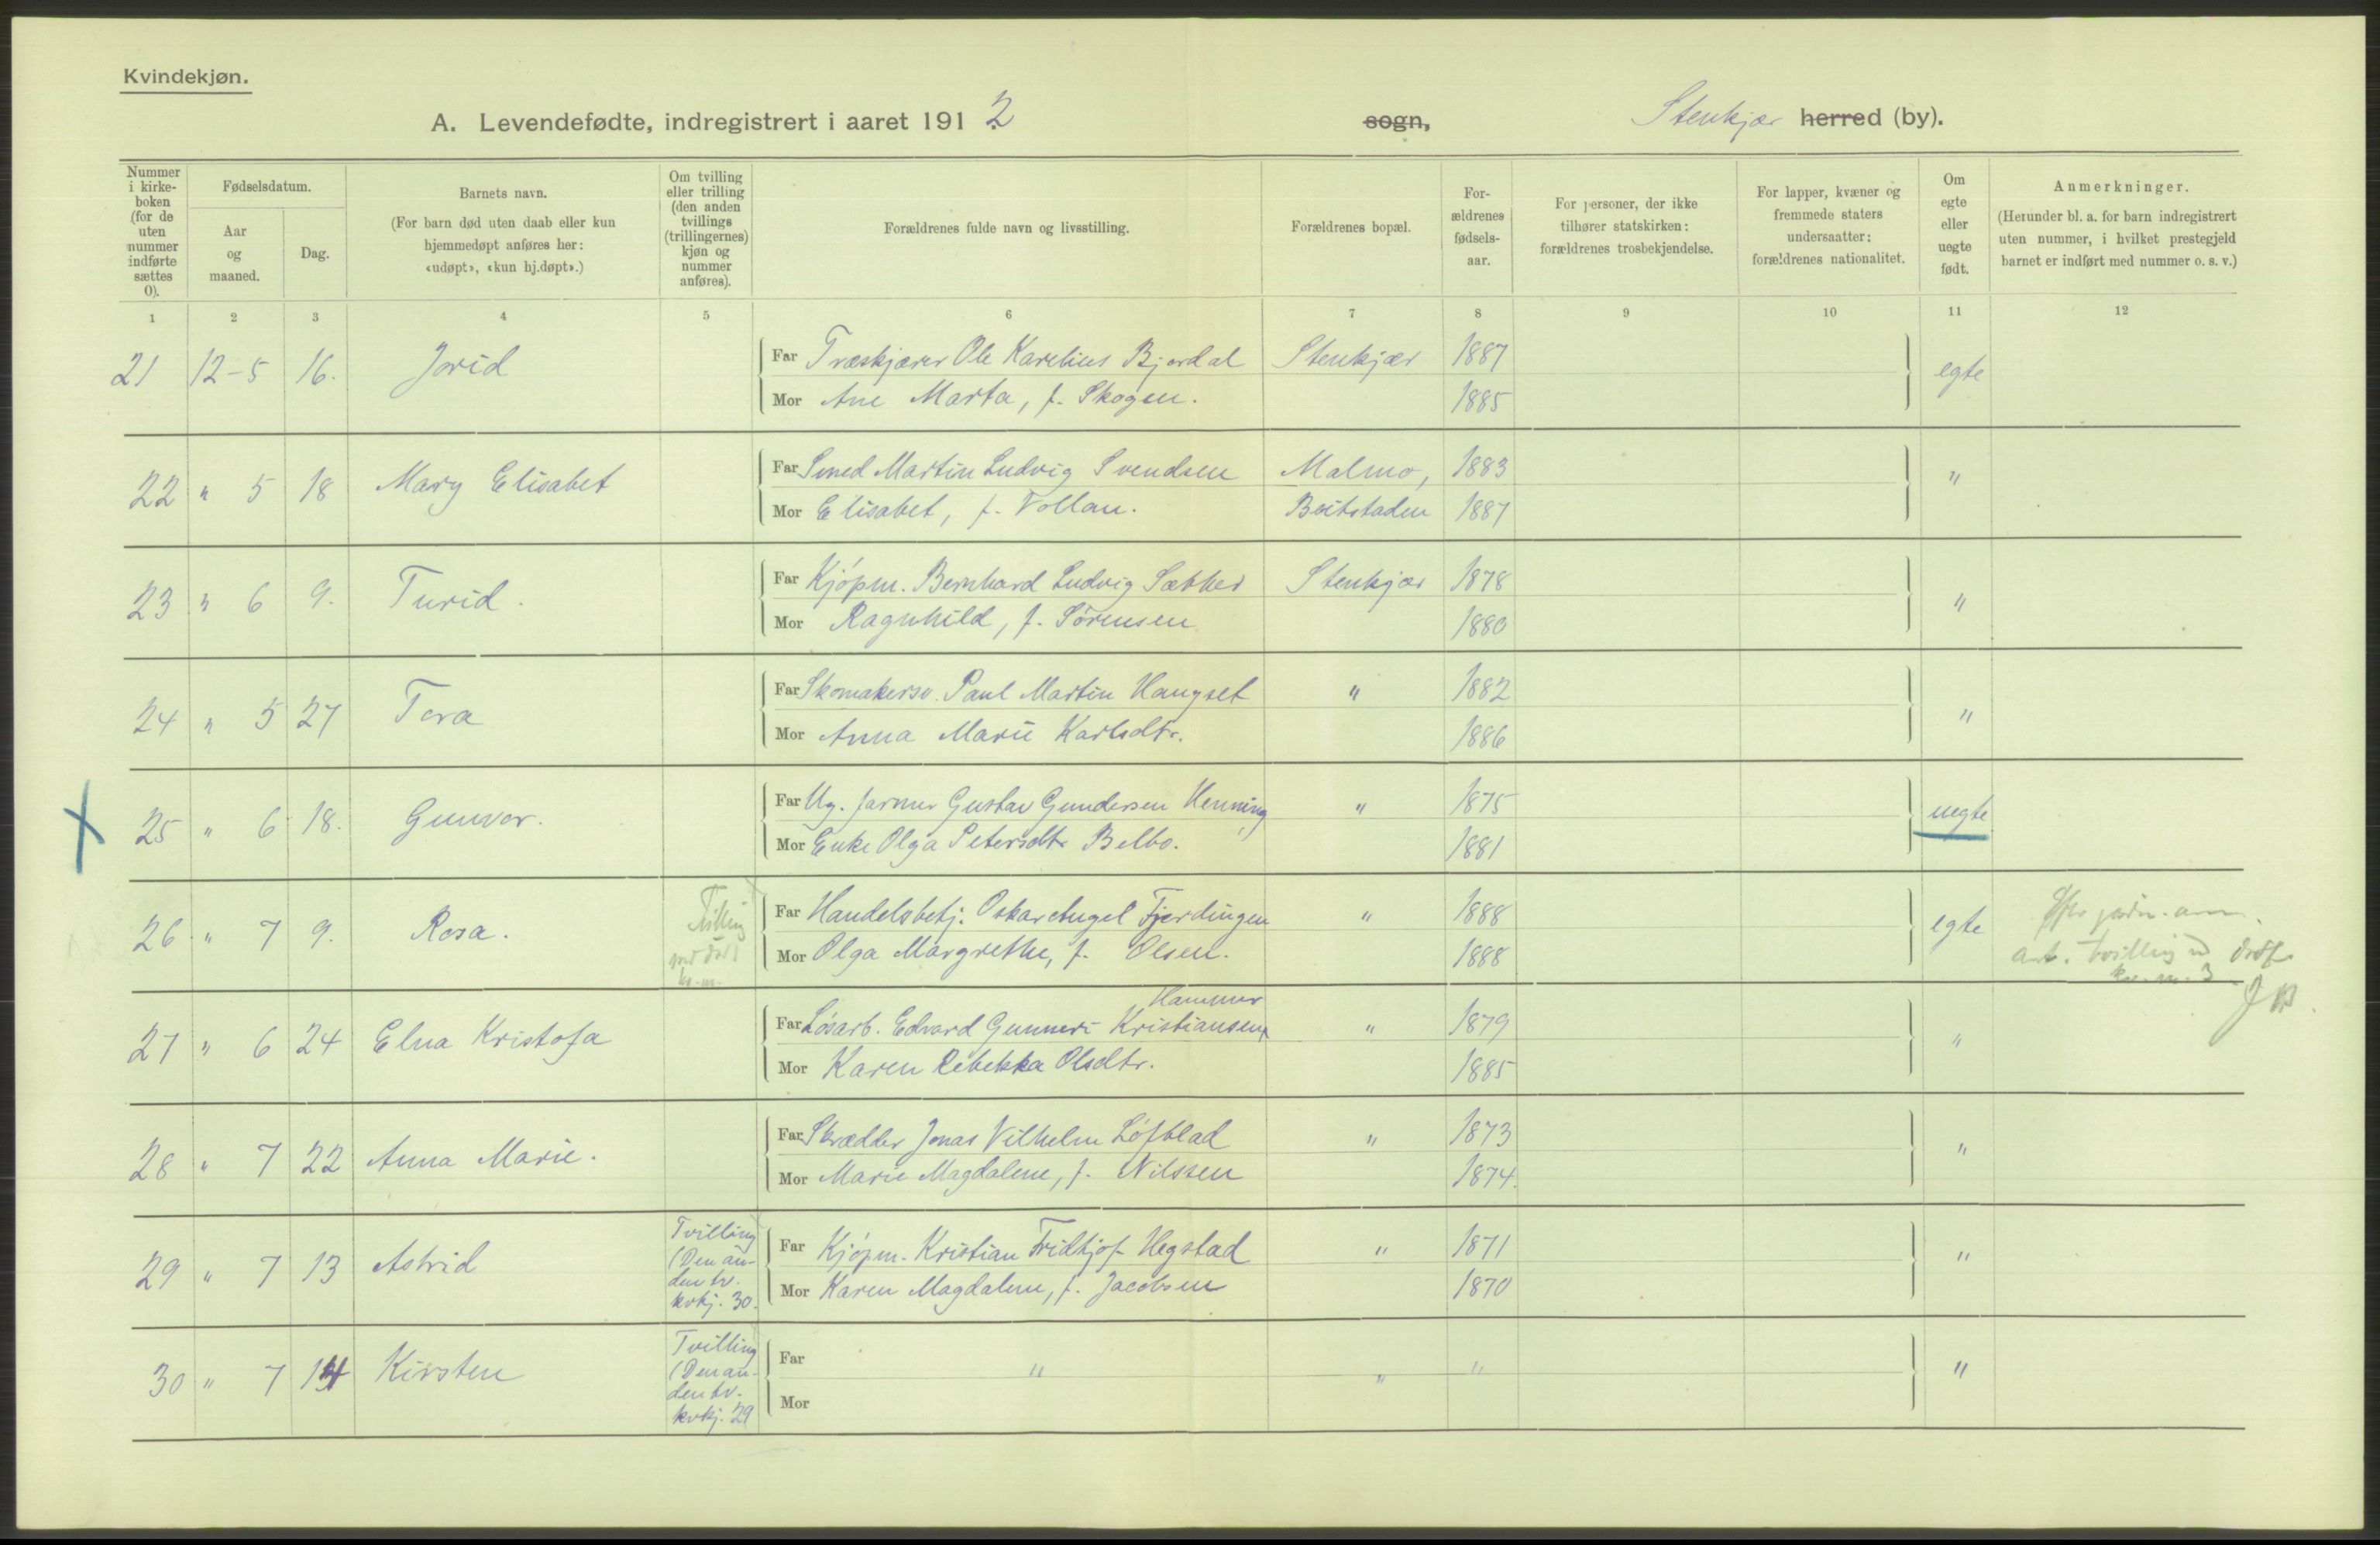 Kvindekjøn.
A. Levendefødte, indregistrert i aaret 1912 sogn, Stenkjær herred (by).
Nummer i kirke-boken (for de uten nummer indførte sættes 0).
Fødselsdatum.
Aar og maaned.
Dag.
Barnets navn.
(For barn død uten daab eller kun hjemmedøpt anføres her: «udøpt», «kun hj.døpt».)
Om tvilling eller trilling (den anden tvillings (trillingernes) kjøn og nummer anføres).
Forældrenes fulde navn og livsstilling.
Forældrenes bopæl.
For-ældrenes fødsels-aar.
For personer, der ikke tilhører statskirken: forældrenes trosbekjendelse.
For lapper, kvæner og fremmede staters undersaatter: forældrenes nationalitet.
Om egte eller uegte født.
Anmerkninger.
(Herunder bl. a. for barn indregistrert uten nummer, i hvilket prestegjeld barnet er indført med nummer o. s. v.)
1 2 3 4 5 6 7 8 9 10 11 12
21 12-5 16. Jorid Far Træskjærer Ole Karelius Bjerdal Stenkjær 1887 egte
Mor Ane Marta, f. Skogen. 1885
22 " 5 18 Mary Elisabet Far Smed Martin Ludvig Svendsen Malmo, 1883 "
Mor Elisabet, f. Vollan. Beitstaden 1887
23 " 6 9. Turid. Far Kjøpm. Bernhard Ludvig Sæther Stenkjær 1878 "
Mor Ragnhild, f. Sørensen 1880
24 " 5 27 Tora Far Skomakersv. Paul Martin Haugset " 1882 "
Mor Anna Marie Karlsdtr. 1886
25 " 6 18. Gunvor. Far Ug. farmer Gustav Gundersen Henning, " 1875 uegte
Mor Enke Olga Petersdtr Belbo. 1881
26 " 7 9. Rosa. Tvilling Far Handelsbetj. Oskar Angel Fjerdingen " 1888 egte
Mor Olga Margrethe, f. Olsen. 1888
ant. tvilling
27 " 6 24 Elna Kristofa Far Løsarb. Edvard Gunneri Kristiansen Hammer " 1879 "
Mor Karen Rebekka Olsdtr. 1885
28 " 7 22 Anna Marie. Far Skrædder Jonas Vilhelm Löfblad " 1873 "
Mor Marie Magdalene, f. Nilssen 1874.
29 " 7 13 Astrid Tvilling (Den an-den tv. kvkj. 30. Far Kjøpm. Kristian Fridtjof Hegstad " 1871 "
Mor Karen Magdalene, f. Jacobsen 1870
30 " 7 14 Kirsten Tvilling (Den an-den tv. kvkj. 29 Far " " " "
Mor